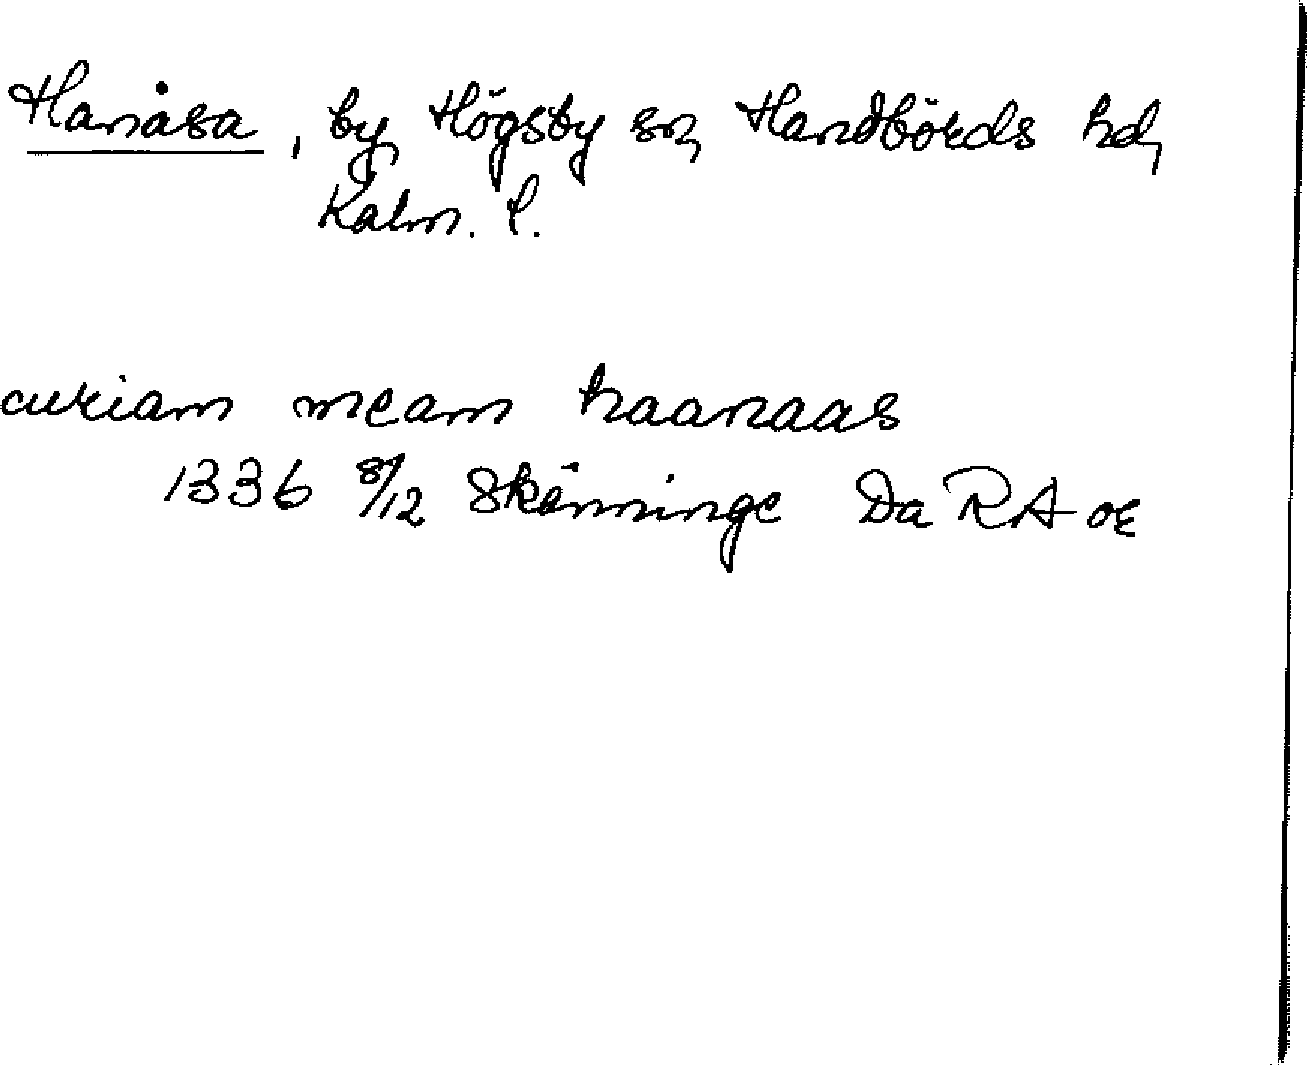 Hanåsa, by, Högsby sn, Handbörds hd,
Kalm. l.
curiam meam haanaas
1336 8/12 Skänninge Da RA or